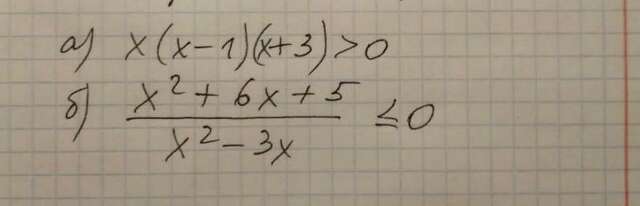 а) x(x-1)(x+3)>0
б) \frac{x^2+6x+5}{x^2-3x} ≤ 0